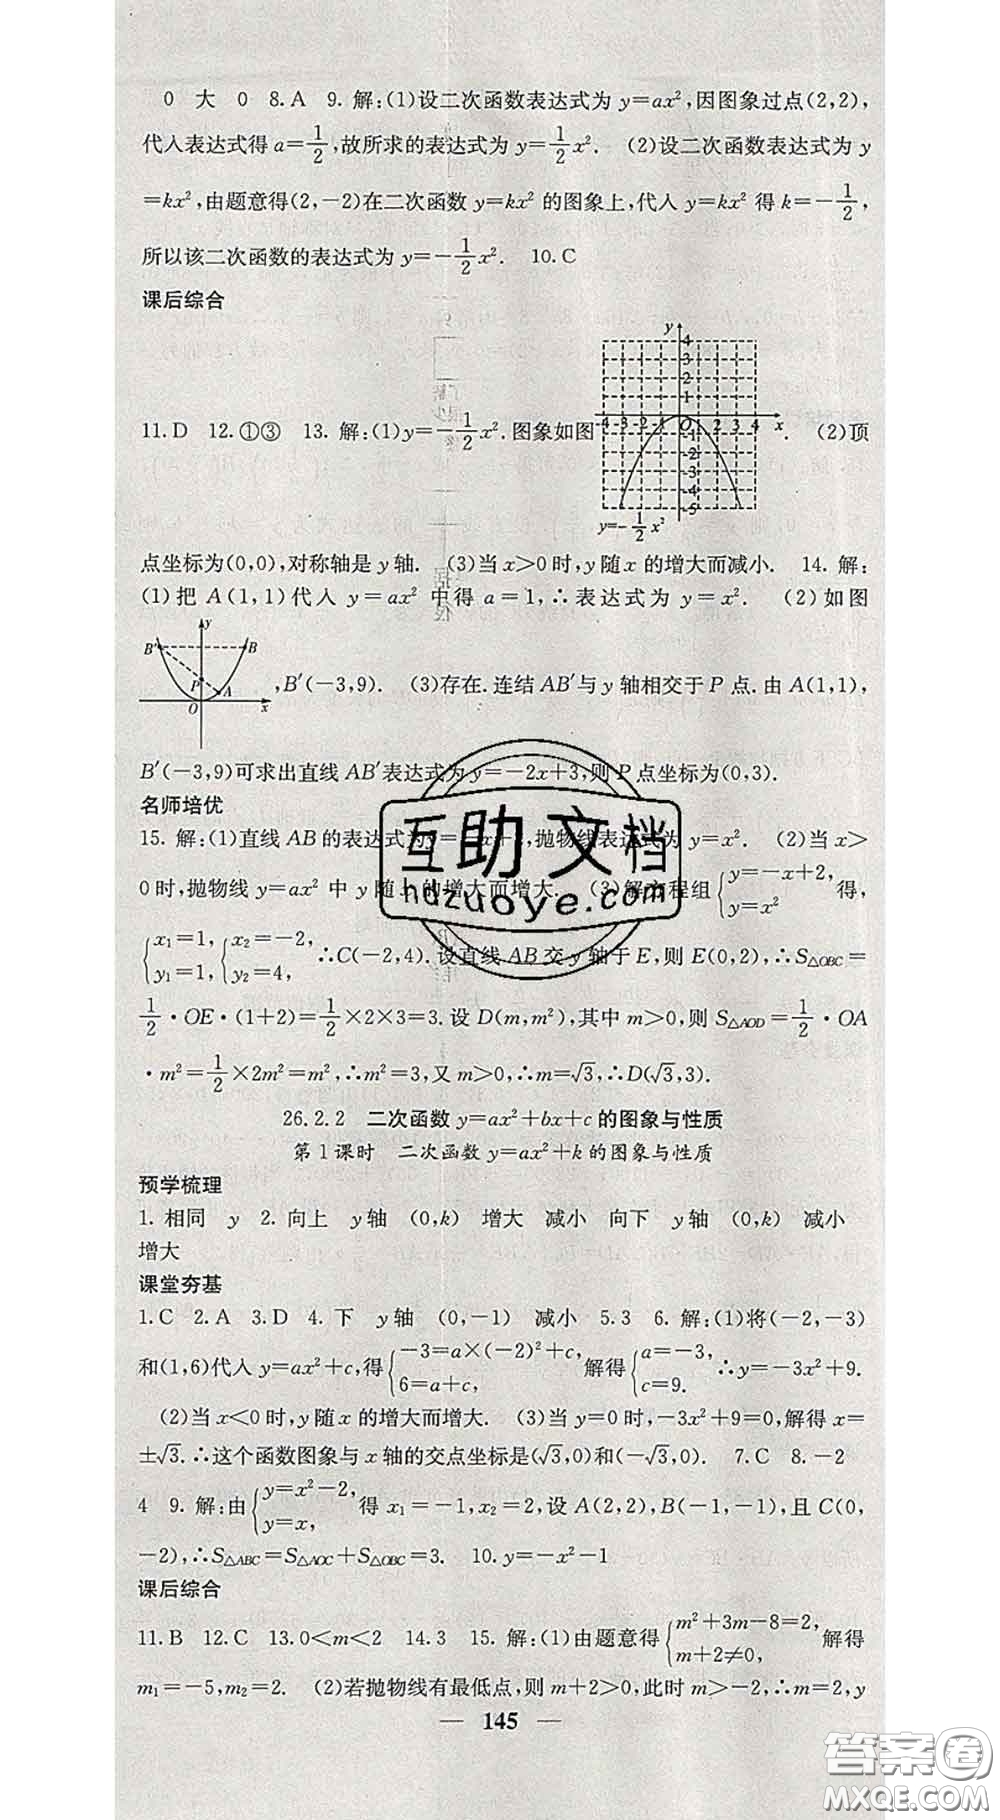 0 大 0 8.A 9.解:(1)设二次函数表达式为 y=ax²,因图象过点(2,2),
代入表达式得 a=1/2,故所求的表达式为 y=1/2x². (2)设二次函数表达式为 y
=kx²,由题意得(2,-2)在二次函数 y=kx² 的图象上,代入 y=kx² 得 k=-1/2,
所以该二次函数的表达式为 y=-1/2x². 10.C
课后综合
y
4
3
2
1
-4 -3 -2 -1 O 1 2 3 4 x
-1
-2
-3
-4
-5
y=-1/2x²
11.D 12.①③ 13.解:(1)y=-1/2x².图象如图 . (2)顶
点坐标为(0,0),对称轴是 y 轴. (3)当 x>0 时,y 随 x 的增大而减小. 14.解:
(1)把 A(1,1)代入 y=ax² 中得 a=1,∴表达式为 y=x². (2)如图
y
B′ B
P A
O x
,B′(-3,9). (3)存在.连结 AB′与 y 轴相交于 P 点.由 A(1,1),
B′(-3,9)可求出直线 AB′表达式为 y=-2x+3,则 P 点坐标为(0,3).
名师培优
15.解:(1)直线 AB 的表达式为 y= ,抛物线表达式为 y=x². (2)当 x>
0 时,抛物线 y=ax² 中 y 随 的增大而增大. (3)解方程组{y=-x+2, y=x² 得,
{x₁=1, y₁=1,{x₂=-2, y₂=4, ∴C(-2,4).设直线 AB 交 y 轴于 E,则 E(0,2),∴S△OBC=
1/2·OE·(1+2)=1/2×2×3=3.设 D(m,m²),其中 m>0,则 S△AOD=1/2·OA
·m²=1/2×2m²=m²,∴m²=3,又 m>0,∴m=√3,∴D(√3,3).
26.2.2 二次函数 y=ax²+bx+c 的图象与性质
第 1 课时 二次函数 y=ax²+k 的图象与性质
预学梳理
1.相同 y 2.向上 y 轴 (0,k) 增大 减小 向下 y 轴 (0,k) 减小
增大
课堂夯基
1.C 2.A 3.D 4.下 y 轴 (0,-1) 减小 5.3 6.解:(1)将(-2,-3)
和(1,6)代入 y=ax²+c,得{-3=a×(-2)²+c, 6=a+c, 解得{a=-3, c=9. ∴y=-3x²+9.
(2)当 x<0 时,y 随 x 的增大而增大. (3)当 y=0 时,-3x²+9=0,解得 x=
±√3.∴这个函数图象与 x 轴的交点坐标是(√3,0)和(-√3,0). 7.C 8.-2
4 9.解:由{y=x²-2, y=x, 得 x₁=-1,x₂=2,设 A(2,2),B(-1,-1),且 C(0,
-2),∴S△ABC=S△AOC+S△OBC=3. 10.y=-x²-1
课后综合
11.B 12.C 13.0<m<2 14.3 15.解:(1)由题意得{m²+3m-8=2, m+2≠0, 解得
m₁=-5,m₂=2. (2)若抛物线有最低点,则 m+2>0,此时 m>-2,∴m=2,y
— 145 —
互助文档
hdzuoye.com
答案圈
MXQE.COM